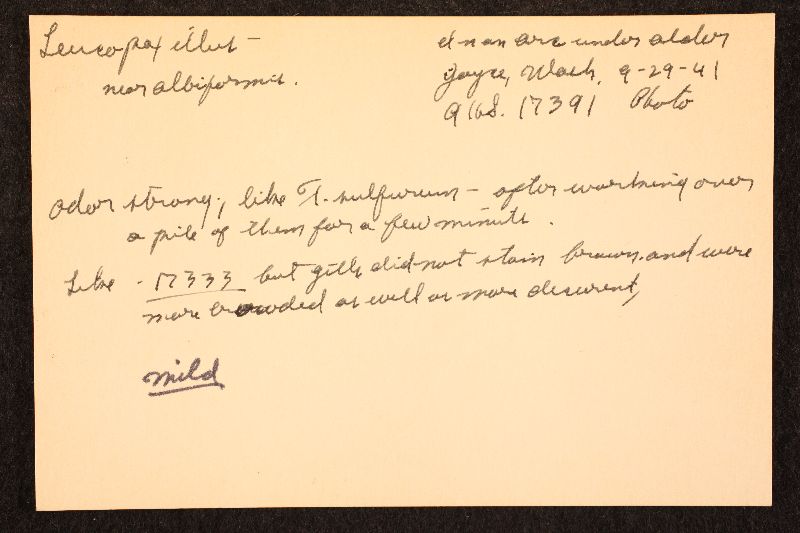 Leucopax illus –
near albiformis.
in an arc under alder
Joyce, Wash. 9-29-41
AHS. 17391 Photo
odor strong, like T. sulfureum – after working over
a pile of them for a few minutes.
Like - 17333 but gills did not stain brown. and were
more crowded as well as more decurrent,
mild